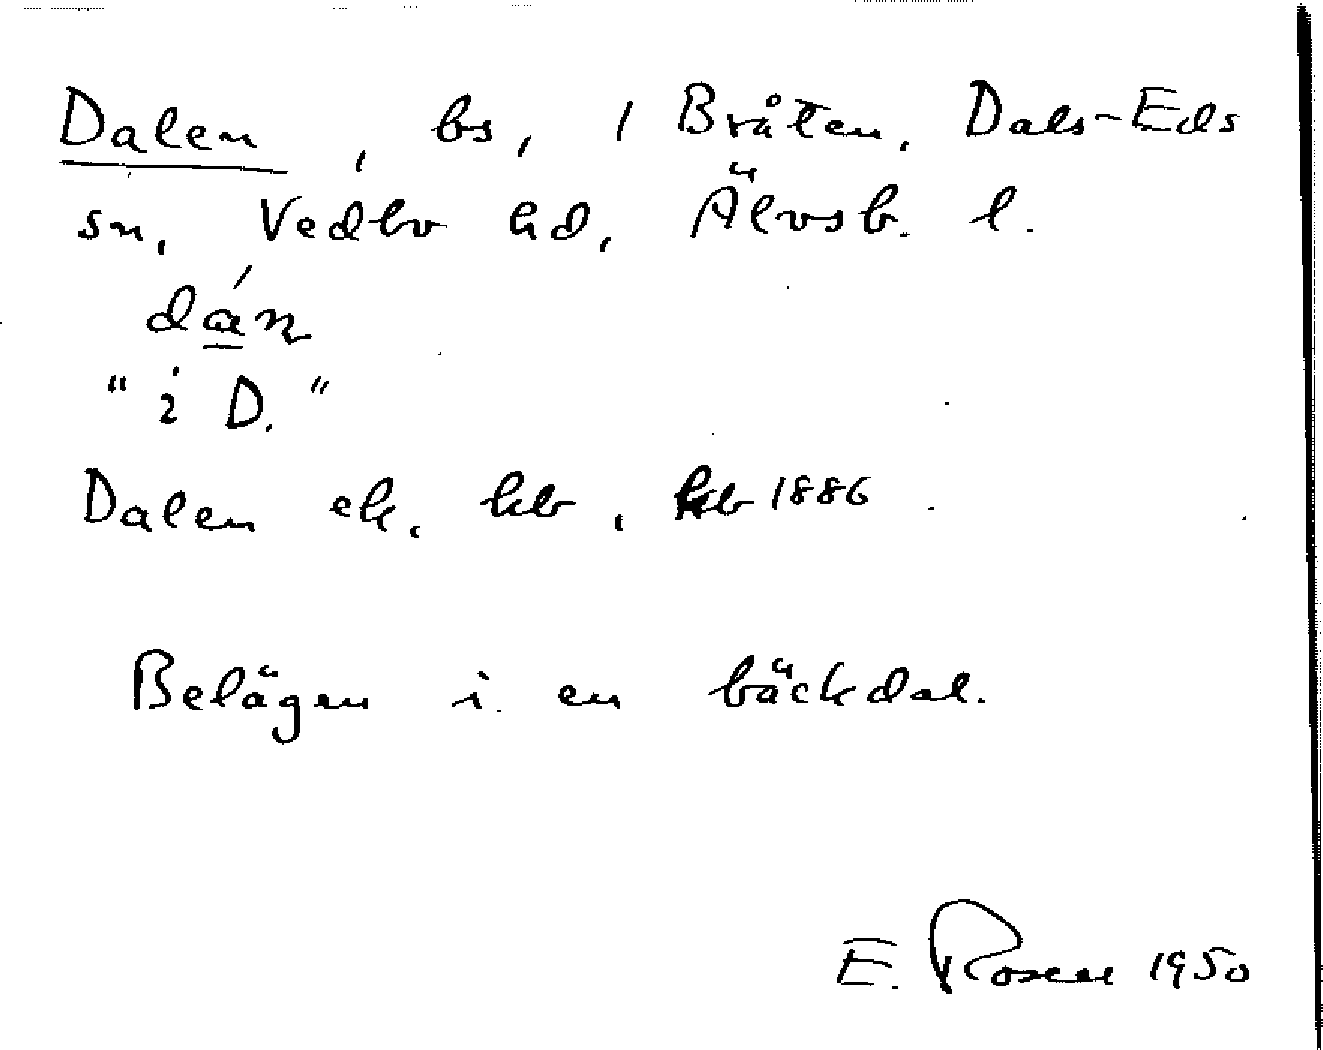 Dalen, bs, / Bråten, Dals-Eds
sn, Vedbo hd, Älvsb. l.
dán
"i D."
Dalen ek, kb, 1886.
Belägen i en bäckdal.
E. Rosen 1950